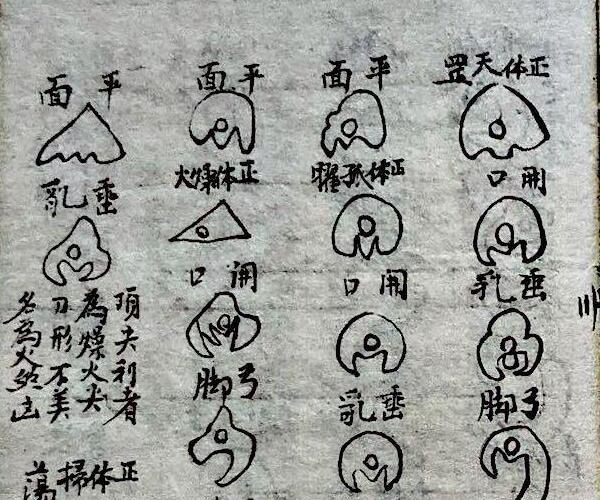 正体天罡
開口
垂乳
弓脚
平面
正体孤曜
開口
垂乳
平面
正体燥火
開口
弓脚
平面
垂乳
頂尖利者
為燥火尖
刀形不美
名為火
正体掃蕩